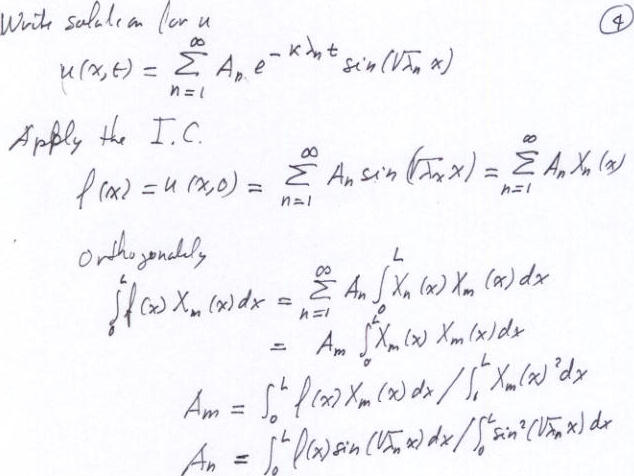 Write solution for u ④
u(x,t) = ∑_{n=1}^{∞} A_n e^{-κλ_n t} sin(√λ_n x)
Apply the I.C.
f(x) = u(x,0) = ∑_{n=1}^{∞} A_n sin(√λ_n x) = ∑_{n=1}^{∞} A_n X_n(x)
Orthogonality
∫_0^L f(x) X_m(x) dx = ∑_{n=1}^{∞} A_n ∫_0^L X_n(x) X_m(x) dx
= A_m ∫_0^L X_m(x) X_m(x) dx
A_m = ∫_0^L f(x) X_m(x) dx / ∫_0^L X_m(x)² dx
A_n = ∫_0^L f(x) sin(√λ_n x) dx / ∫_0^L sin²(√λ_n x) dx